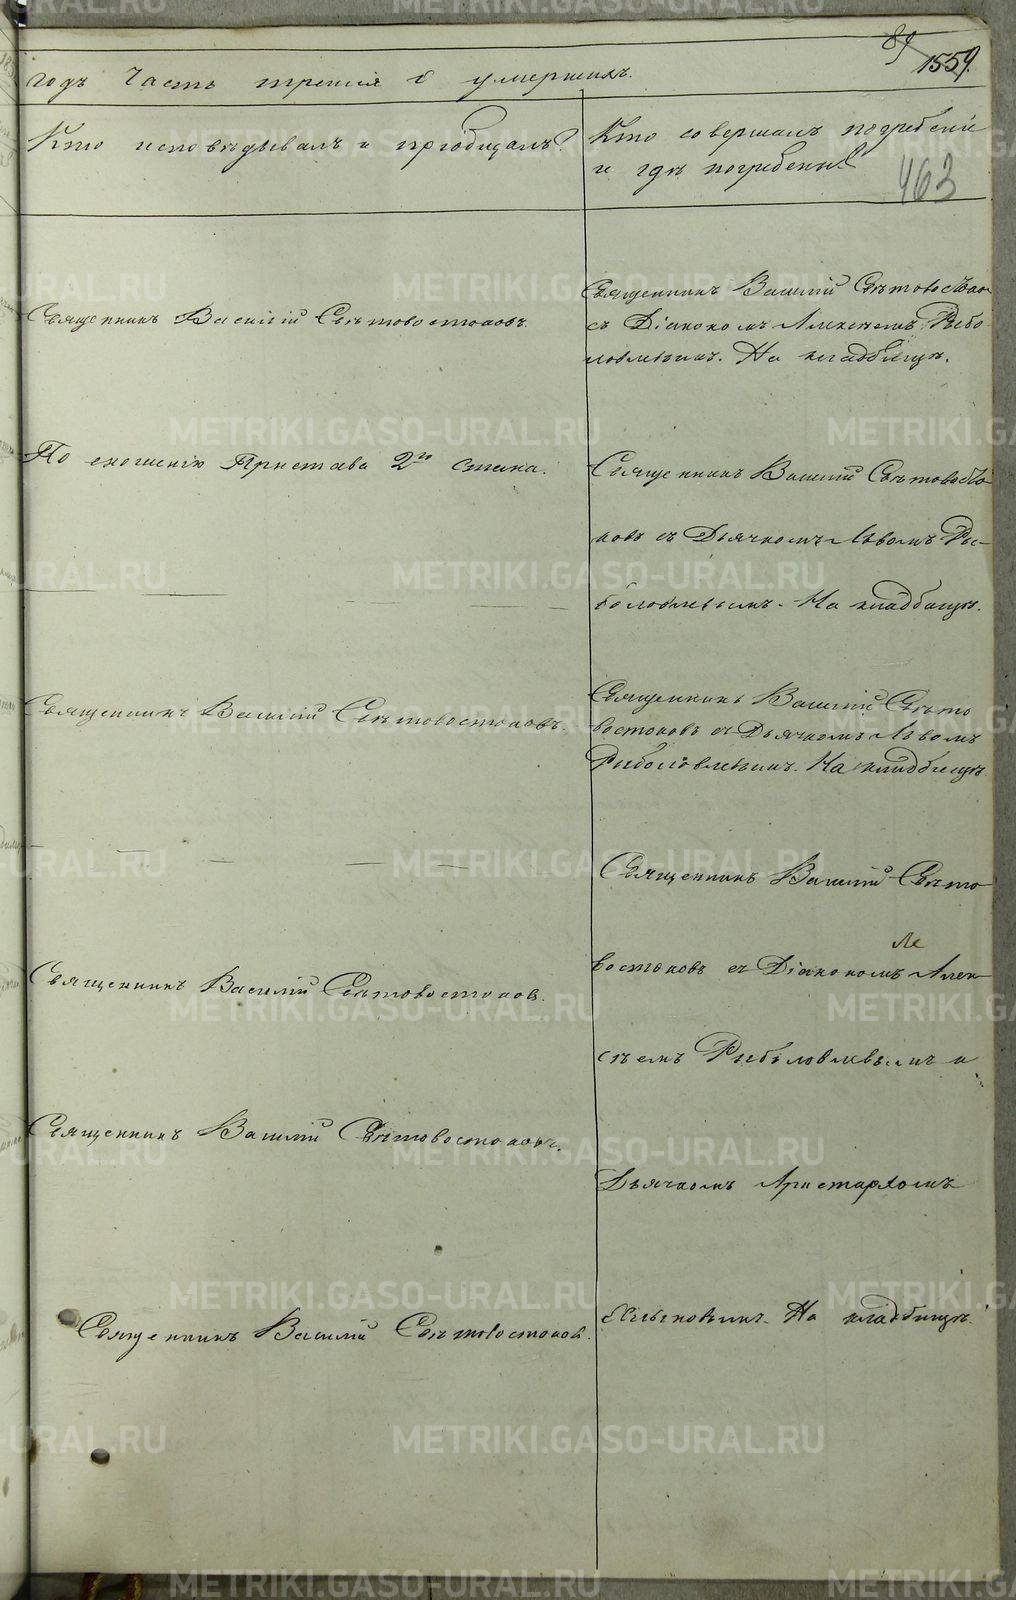 89
1559.
годъ Часть третія о умершихъ.
Кто исповѣдывалъ и пріобщалъ?
Кто совершалъ погребеніе
и гдѣ погребены?
463
Священникъ Василій Свѣтовостоковъ.
Священникъ Василій Свѣтовосто
съ Діакономъ Алексѣемъ Рыбо
ловлевымъ. На кладбищѣ.
По сношенію Пристава 2го Стана.
Священникъ Василій Свѣтовосто
ковъ съ Дьячкомъ Львомъ Ры-
боловлевымъ. На кладбищѣ.
Священникъ Василій Свѣтовостоковъ.
Священникъ Василій Свѣто
востоковъ съ Дьячкомъ Львомъ
Рыболовлевымъ. На кладбищѣ.
Священникъ Василій Свѣто
Священникъ Василій Свѣтовостоков.
Ле
востоковъ съ Діакономъ Алек
сѣемъ Рыболовлевымъ и
Священникъ Василій Свѣтовостоковъ.
Дьячкомъ Аристархомъ
Священникъ Василій Свѣтовостоков.
На кладбищѣ.
METRIKI.GASO-URAL.RU